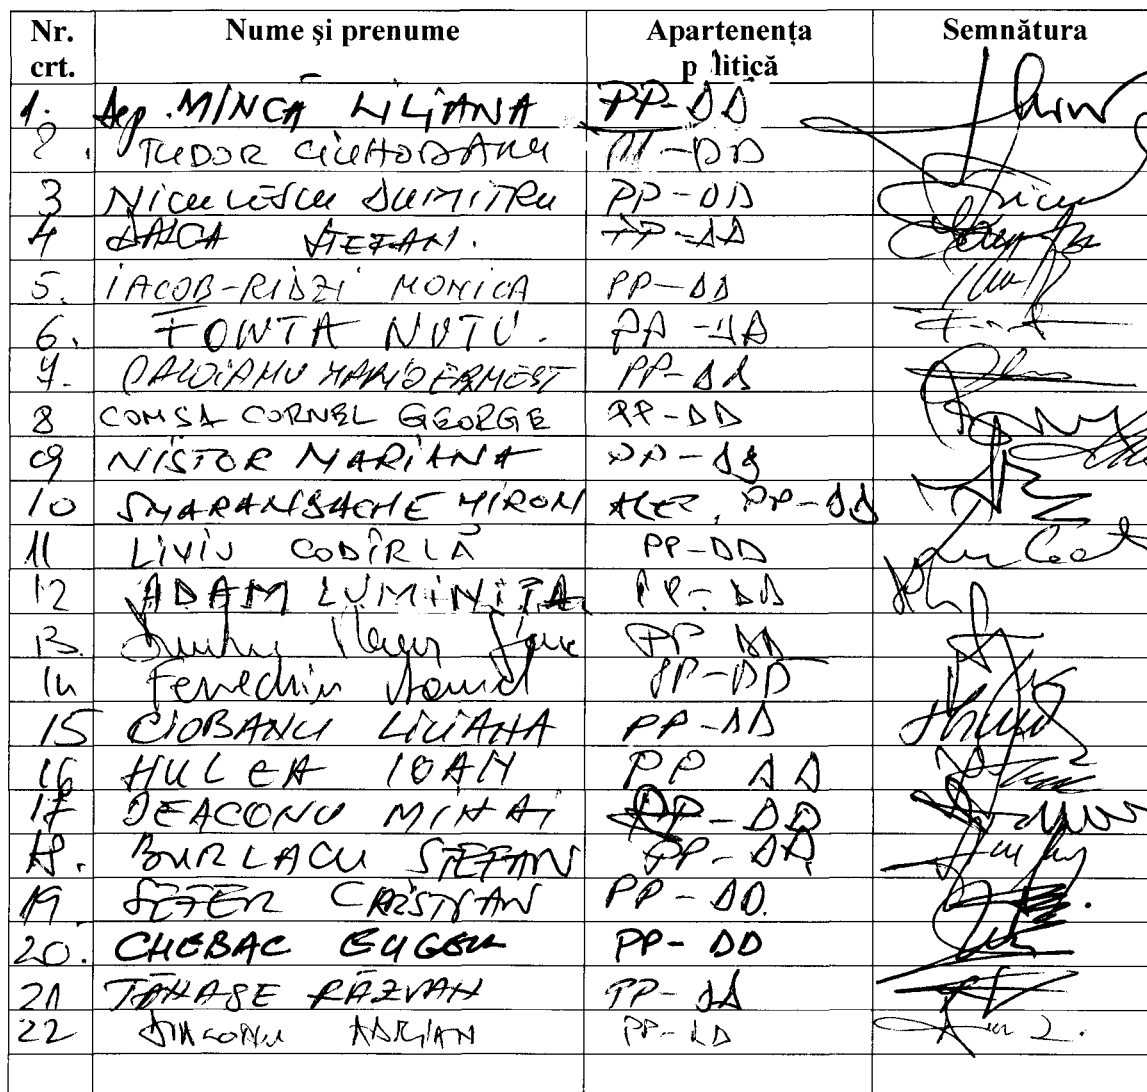 Nr. crt. Nume şi prenume Apartenența p litică Semnătura
1. Dep. MINCĂ LILIANA PP-DD
2. TUDOR CIUHODARU PP-DD
3 NICULESCU DUMITRU PP-DD
4 DALCA ȘTEFAN. PP-DD
5. IACOB-RIDZI MONICA PP-DD
6. FONTA NUTU. PP-DD
7. CALOIANU MARIO ERNEST PP-DD
8 COMSA CORNEL GEORGE PP-DD
9 NISTOR MARIANA PP-DD
10 SMARANDACHE MIRON ALEX. PP-DD
11 LIVIU CODÎRLĂ PP-DD
12 ADAM LUMINIȚA PP-DD
13. PP DD
14 Fenechiu Daniel PP-DD
15 CIOBANU LILIANA PP-DD
16 HULEA IOAN PP DD
17 DEACONU MIHAI PP-DD
18. BURLACU STEFAN PP-DD
19 CRISTIAN PP-DD.
20. CHEBAC EUGEN PP-DD
21 TĂNASE RĂZVAN PP-DD
22 DIACONU ADRIAN PP-DD